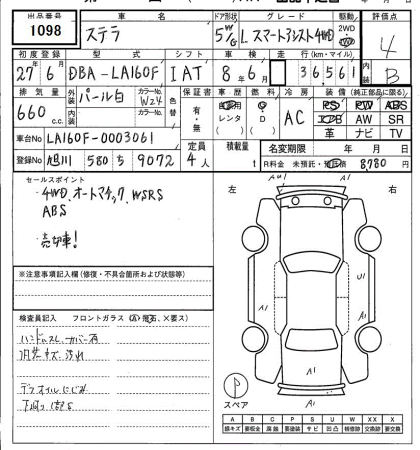 出品番号 車名 ドア形状 グレード 駆動 評価点
1098 ステラ 5W/G Lスマートアシスト4WD 2WD 4
初度登録 型式 シフト 車検 走行(km・マイル) 内装
27年6月 DBA-LA160F IAT 8年 月 36561 B
排気量 外装 カラーNo. 色替 保証書 車歴 燃料 冷房 装備(純正部品に限る)
660 c.c. パール白 W24 有・無 レンタ G・D AC PS PW ABS
内装 カラーNo. AW SR
革 ナビ TV
車台No LA160F-0003061 定員 積載量 名変期限 年 月 日
登録No 旭川 580 ち 9072 4人 t R料金 未預託・預託済 8,780 円
セールスポイント
・4WD、オートマチック、WSRS
ABS
・売切車!
左 右
※注意事項記入欄(修復・不具合箇所および状態等)
検査員記入 フロントガラス(A・飛石、×要ス)
ハンドルスレ、カバー有
内装キズ、汚れ
デフオイルにじみ
下廻り錆S
A1
U1
A1
A1
A1
スペア
A B C P S U W X XX X
線キズ 要板金 腐蝕 要塗装 サビ 凹凸 補修跡 交換跡 要交換